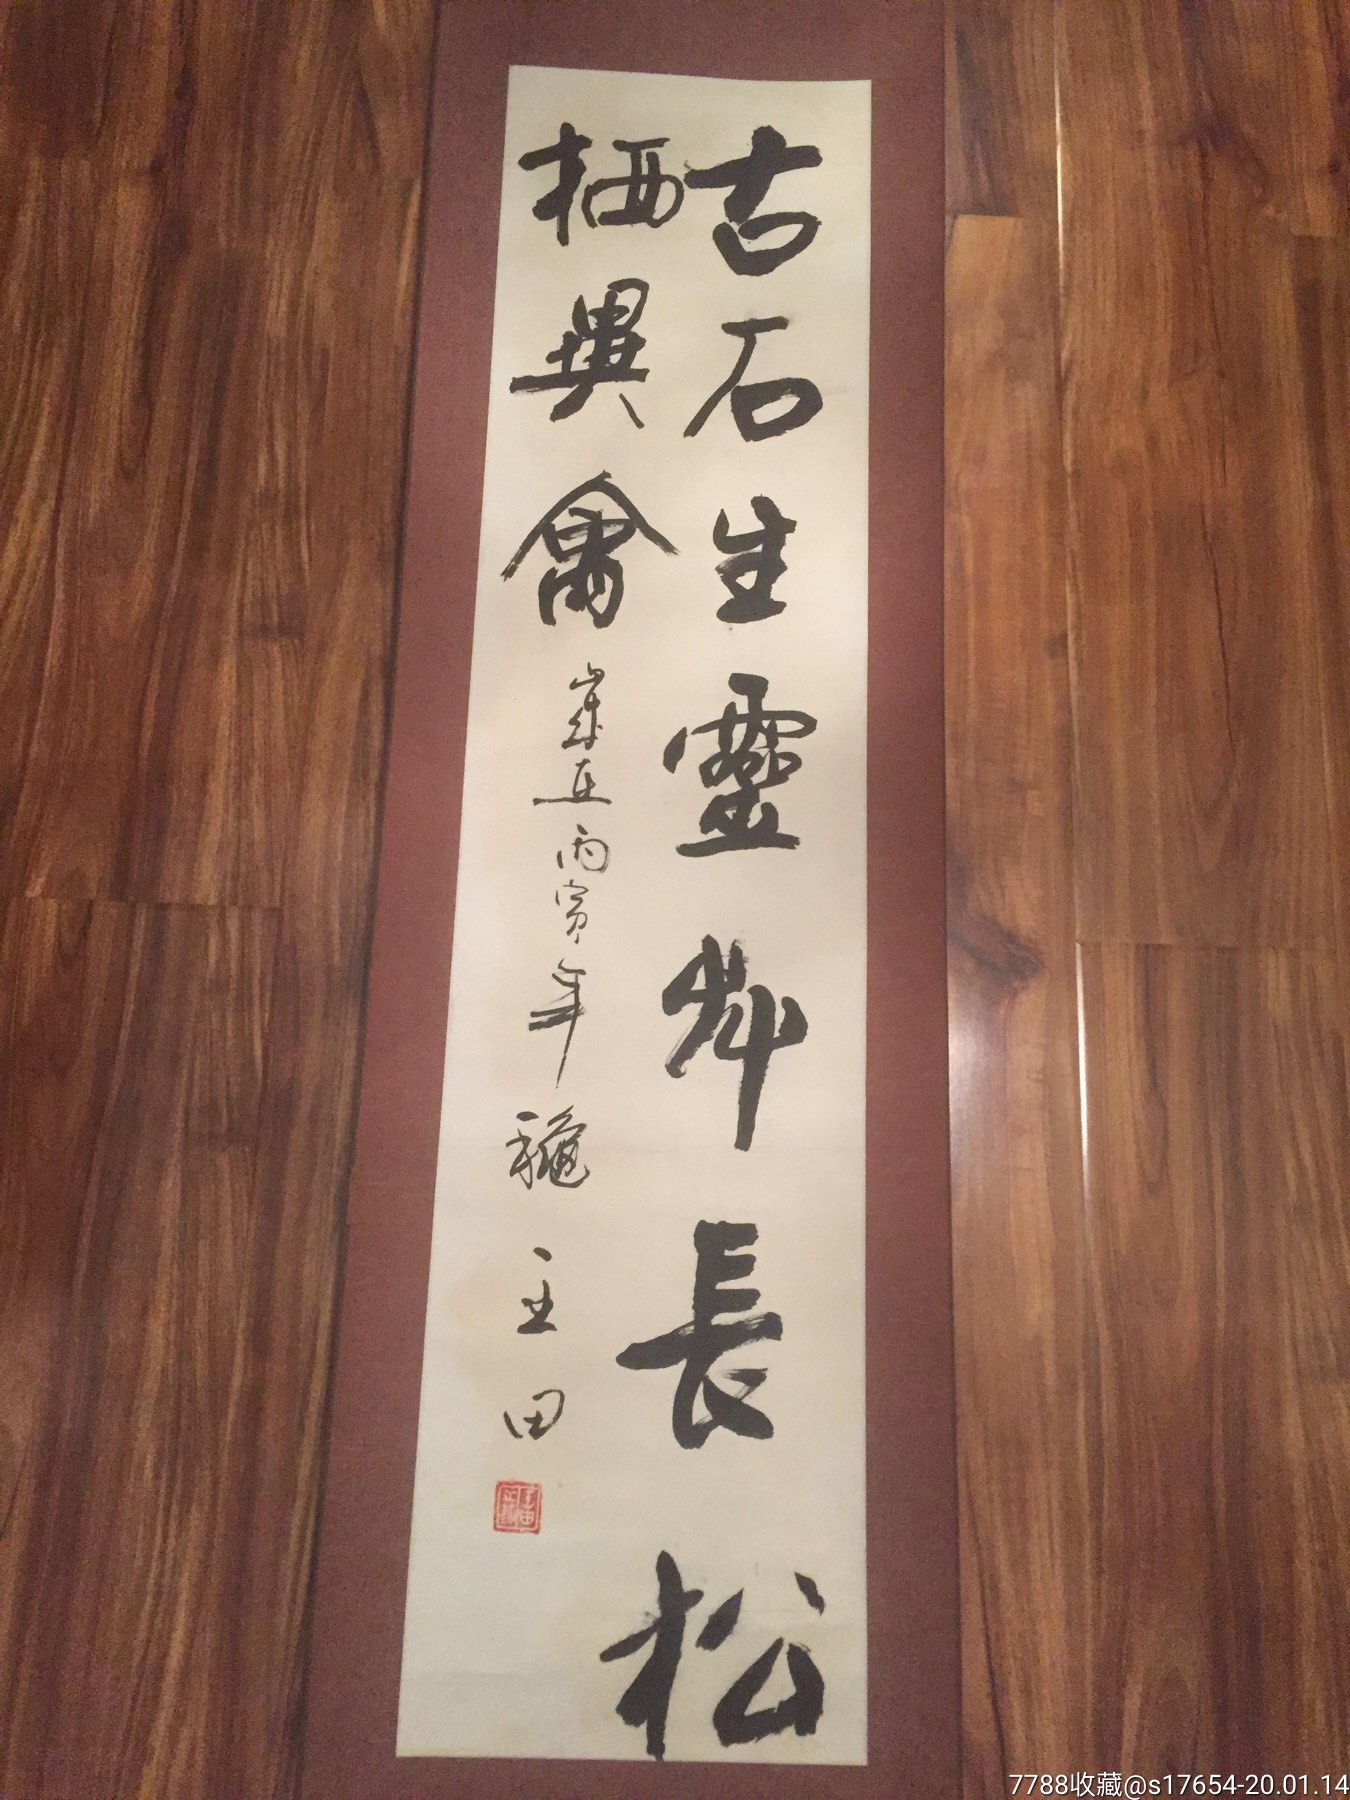 古石生靈草長松
栖異禽歲在丙寅年穐王田
7788收藏@s17654-20.01.14